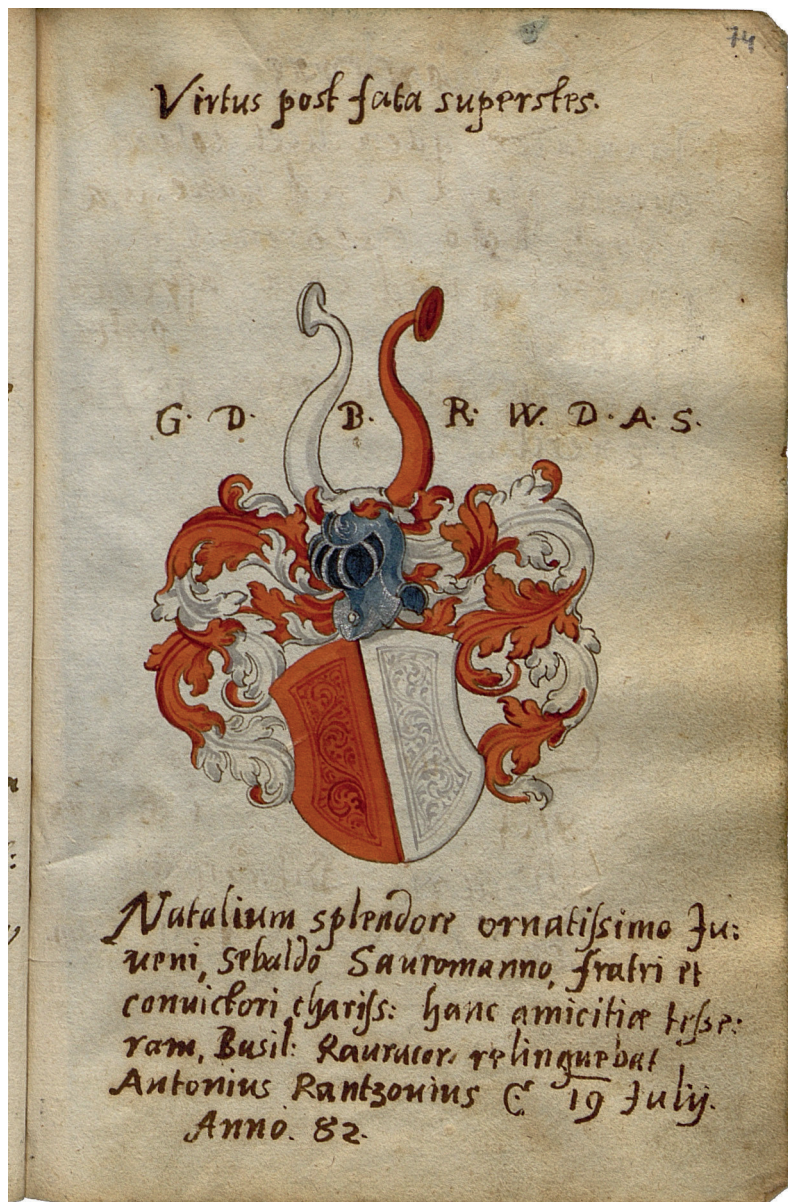 74
Virtus post fata superstes.
G. D. B. R. W. D. A. S.
Natalium splendore ornatissimo Ju:
ueni, Sebaldo Sauromanno, fratri et
conuictori chariss: hanc amicitiæ tesse:
ram, Basil: Rauracor: relinquebat
Antonius Rantzouius 19 Julij.
Anno. 82.